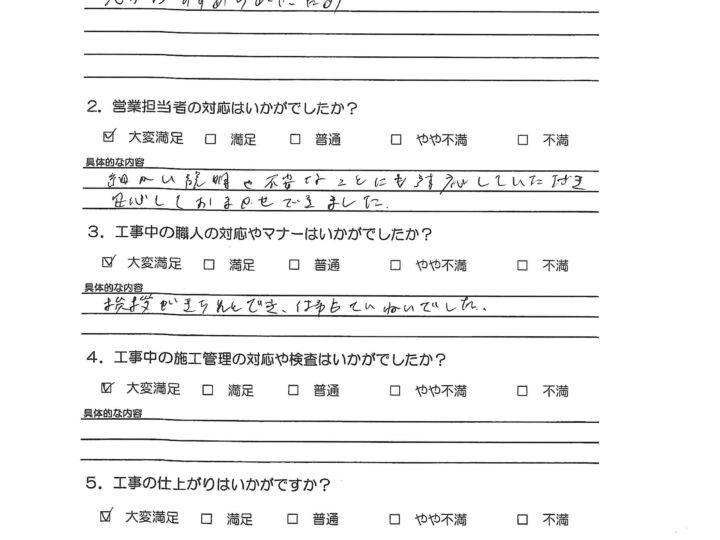 2. 営業担当者の対応はいかがでしたか?
☑ 大変満足 □ 満足 □ 普通 □ やや不満 □ 不満
具体的な内容
細かい説明や不安なことにも対応していただき
安心しておまかせできました。
3. 工事中の職人の対応やマナーはいかがでしたか?
☑ 大変満足 □ 満足 □ 普通 □ やや不満 □ 不満
具体的な内容
挨拶がきちんとでき、仕事もていねいでした。
4. 工事中の施工管理の対応や検査はいかがでしたか?
☑ 大変満足 □ 満足 □ 普通 □ やや不満 □ 不満
具体的な内容
5. 工事の仕上がりはいかがですか?
☑ 大変満足 □ 満足 □ 普通 □ やや不満 □ 不満